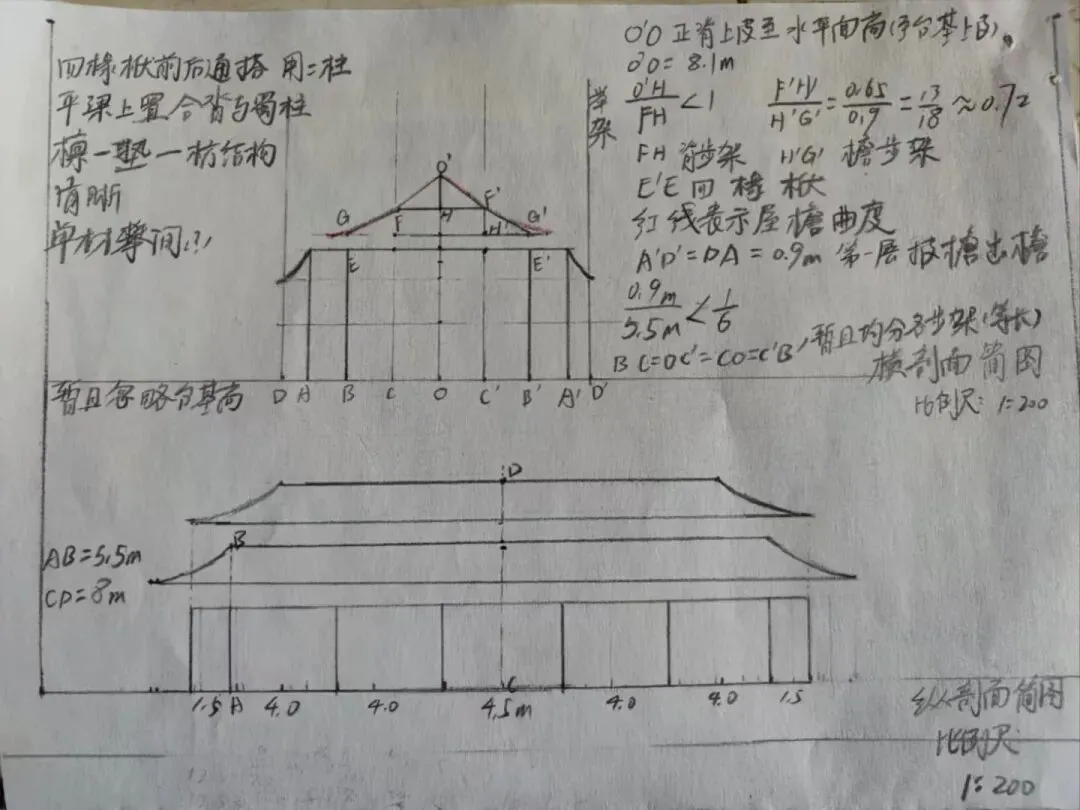 四椽栿前后通搭用二柱
平梁上置合㭼与蜀柱
槫一垫一枋结构
清晰
单材襻间(?)
O'O 正脊上皮至水平面高(至台基上皮)。
O'O = 8.1m
举架
O'H/FH < 1
F'H'/H'G' = 0.65/0.9 = 13/18 ≈ 0.72
FH 脊步架 H'G' 檐步架
E'E 四椽栿
红线表示屋檐曲度
A'D' = DA = 0.9m 第一层披檐出檐
0.9m/5.5m < 1/6
BC=OC'=CO=C'B', 暂且均分各步架(等长)
横剖面简图
比例尺: 1:200
O'
G F H F' H' G'
E E'
暂且忽略台基高
D A B C O C' B' A' D'
D
B
AB=5.5m
CD=8m
C
1.5 A 4.0 4.0 4.5m 4.0 4.0 1.5
纵剖面简图
比例尺:
1:200